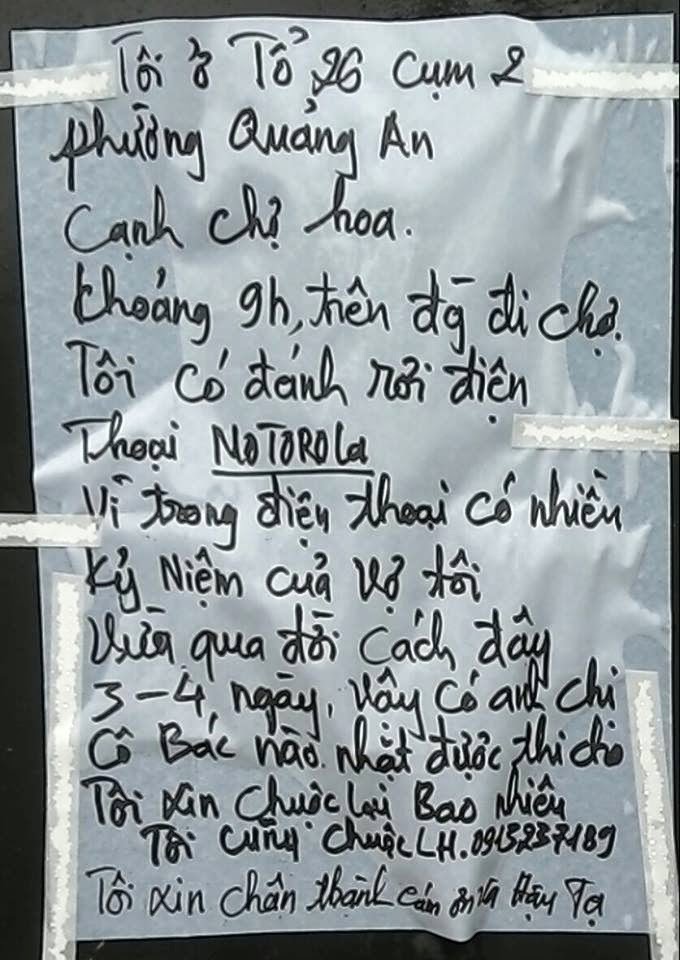 Tôi ở Tổ 26 Cụm 2
phường Quảng An
Cạnh chợ hoa.
khoảng 9h, trên đg đi chợ.
Tôi có đánh rơi điện
Thoại MOTOROLa
Vì trong điện thoại có nhiều
Kỷ Niệm của vợ tôi
vừa qua đời cách đây
3-4 ngày, vậy có anh chị
Cô Bác nào nhặt được thì cho
Tôi xin chuộc lại Bao nhiêu
Tôi cũng chuộc LH. 0913237189
Tôi xin chân thành cảm ơn và Hậu Tạ